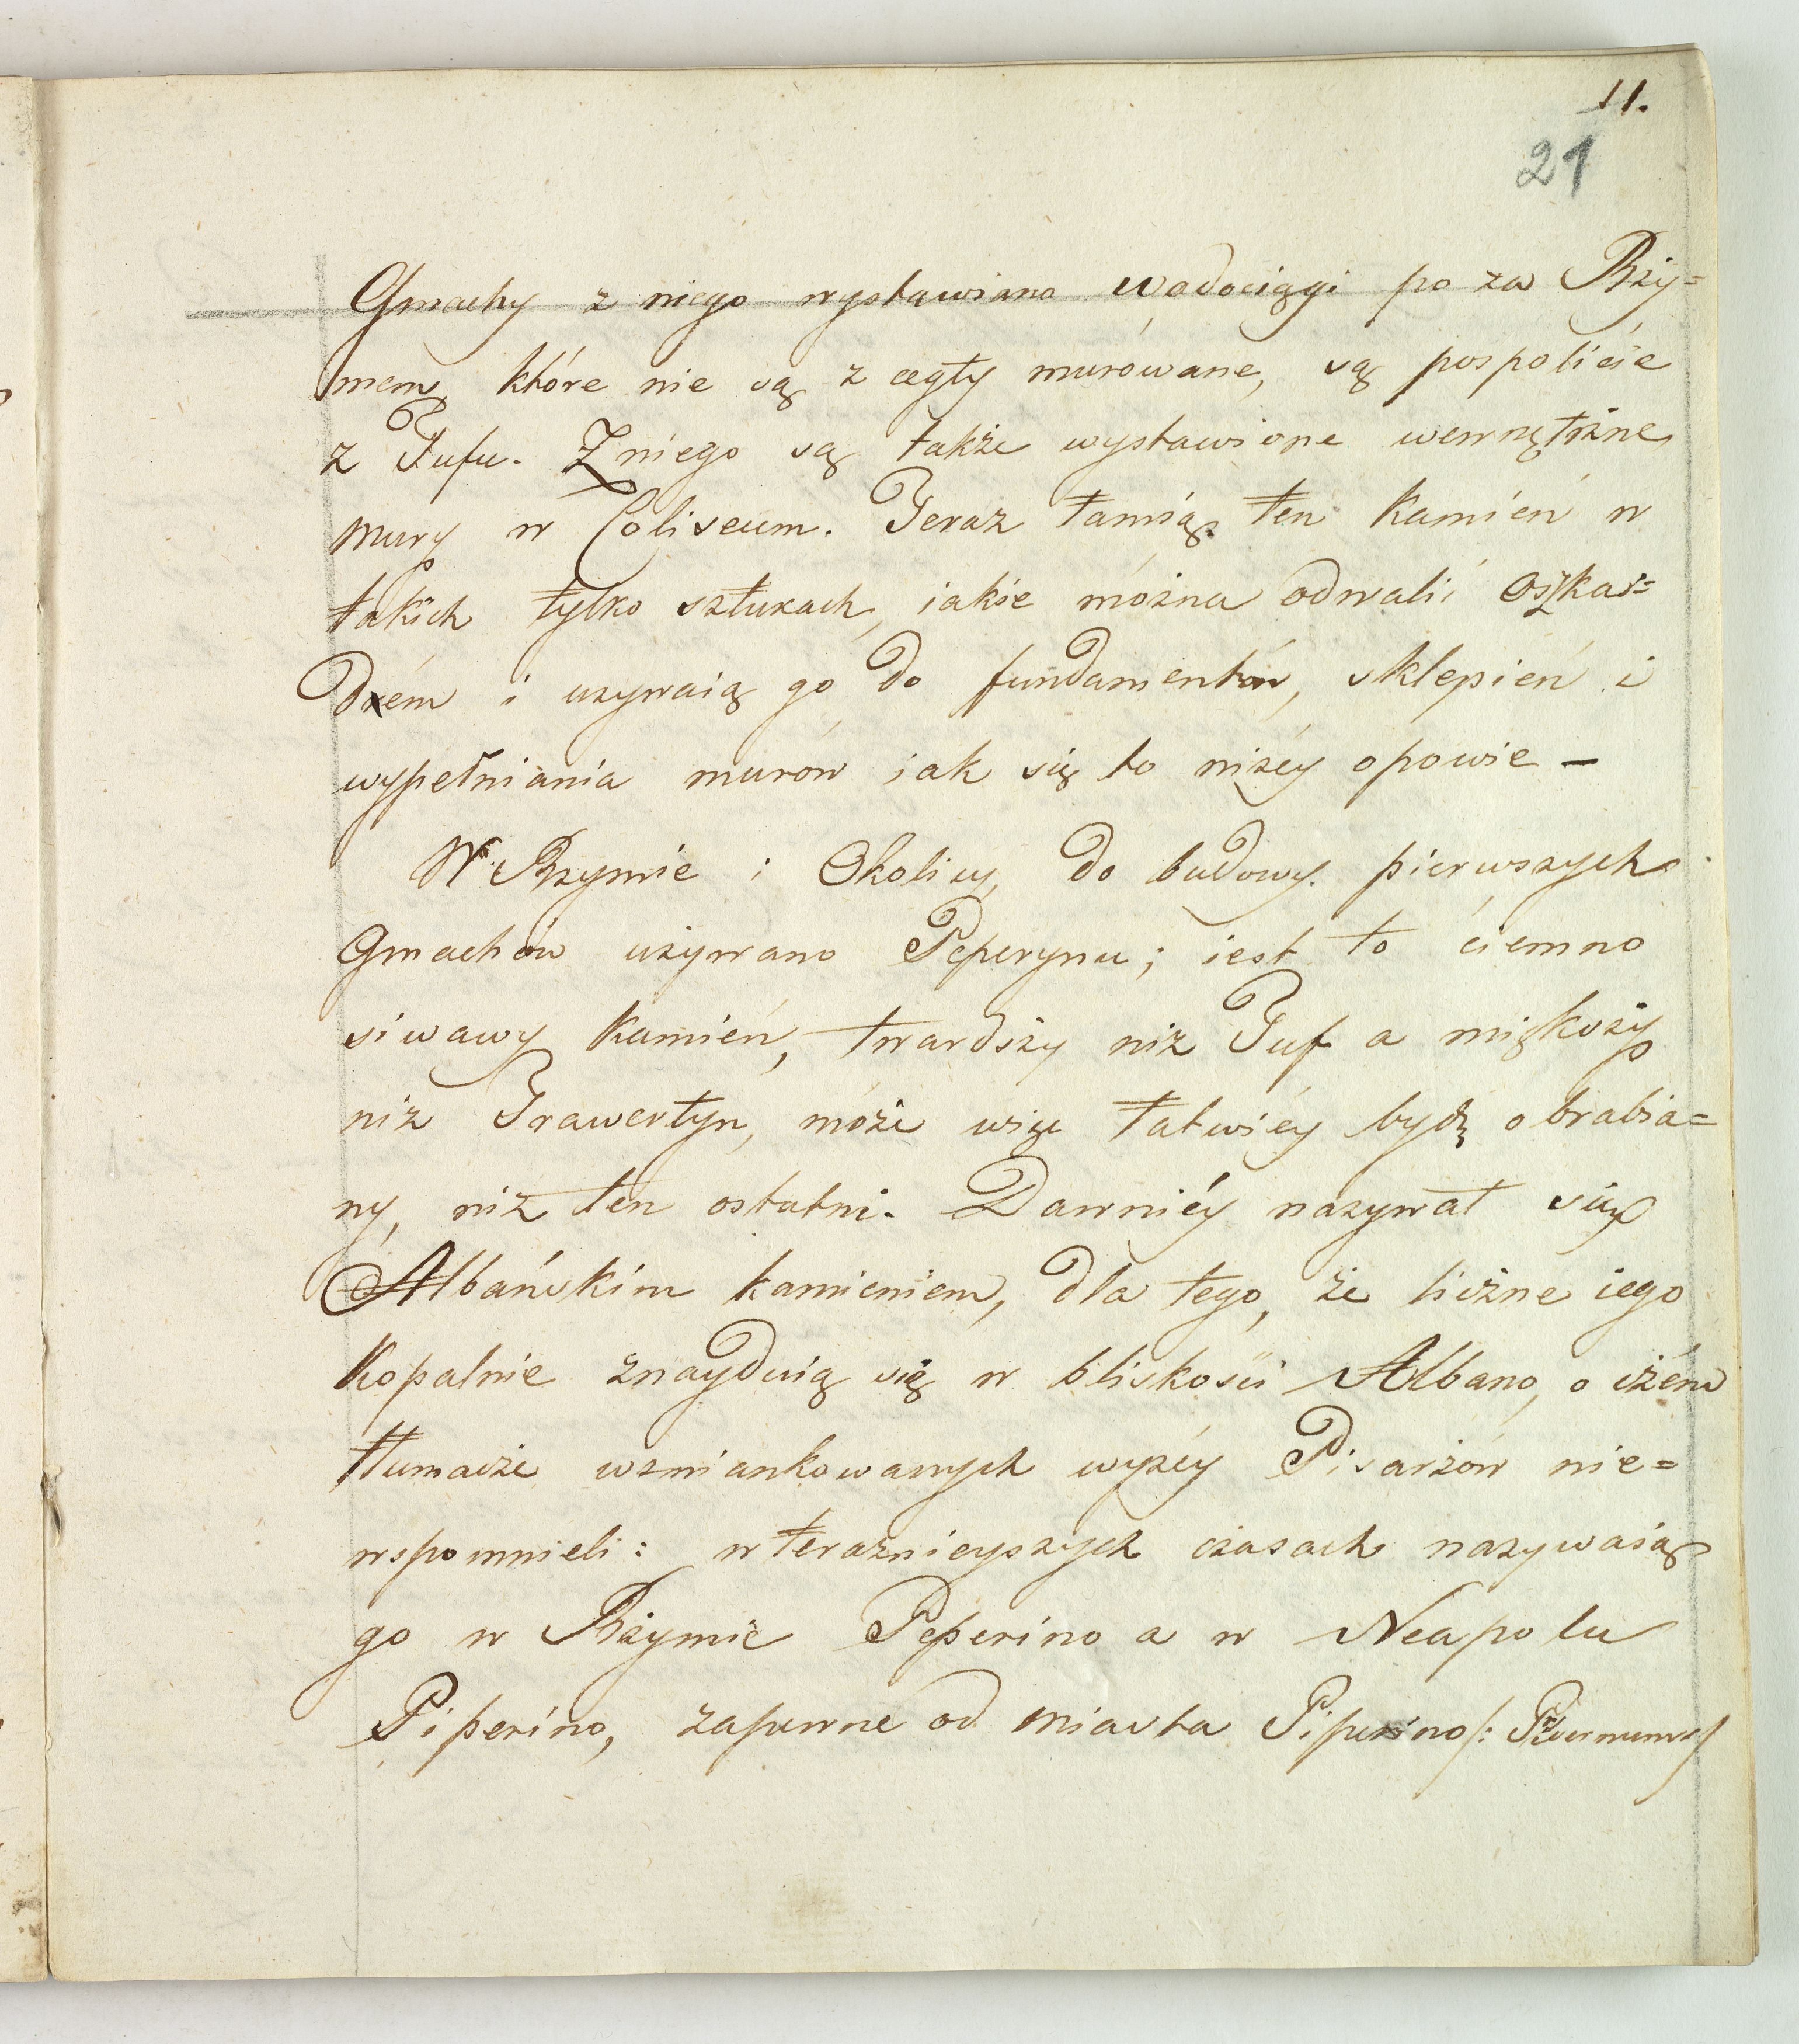 11.
21
Gmachy z niego wystawiano wodociągi po za Rzy=
mem, które nie są z cegły murówane, są pospoliéie
z Tufu. Z niego są także wystawione wewnętrzne
mury w Coliseum. Teraz łamią ten Kamień w
takich tylko sztukach, iakie móżna odwalić Oszkar=
dem i uzywaią go do fundamentów, sklepień i
wypełniania murów iak się to niżéy opowie —
W Rzymie i Okolicy, do budowy pierwszych
Gmachów używano Peperynu; iest to ciemno
siwawy Kamień, twardszy niż Tuf a miększy
niż Trawertyn, móże więc łatwiéy bydź obrabia=
ny, niż ten ostatni. Dawniéy nazywał się
Albańskim kamieniem, dla tego, że liczne iego
Kopalnie znayduią się w bliskości Albano, o czém
tłumacze wzmiankowanych wyżéy Pisarzów nie=
wspomnieli: w teraznieyszych czasach nazywaią
go w Rzymie Peperino a w Neapolu
Piperino, zapewne od miasta Piperino /: Privernum :/